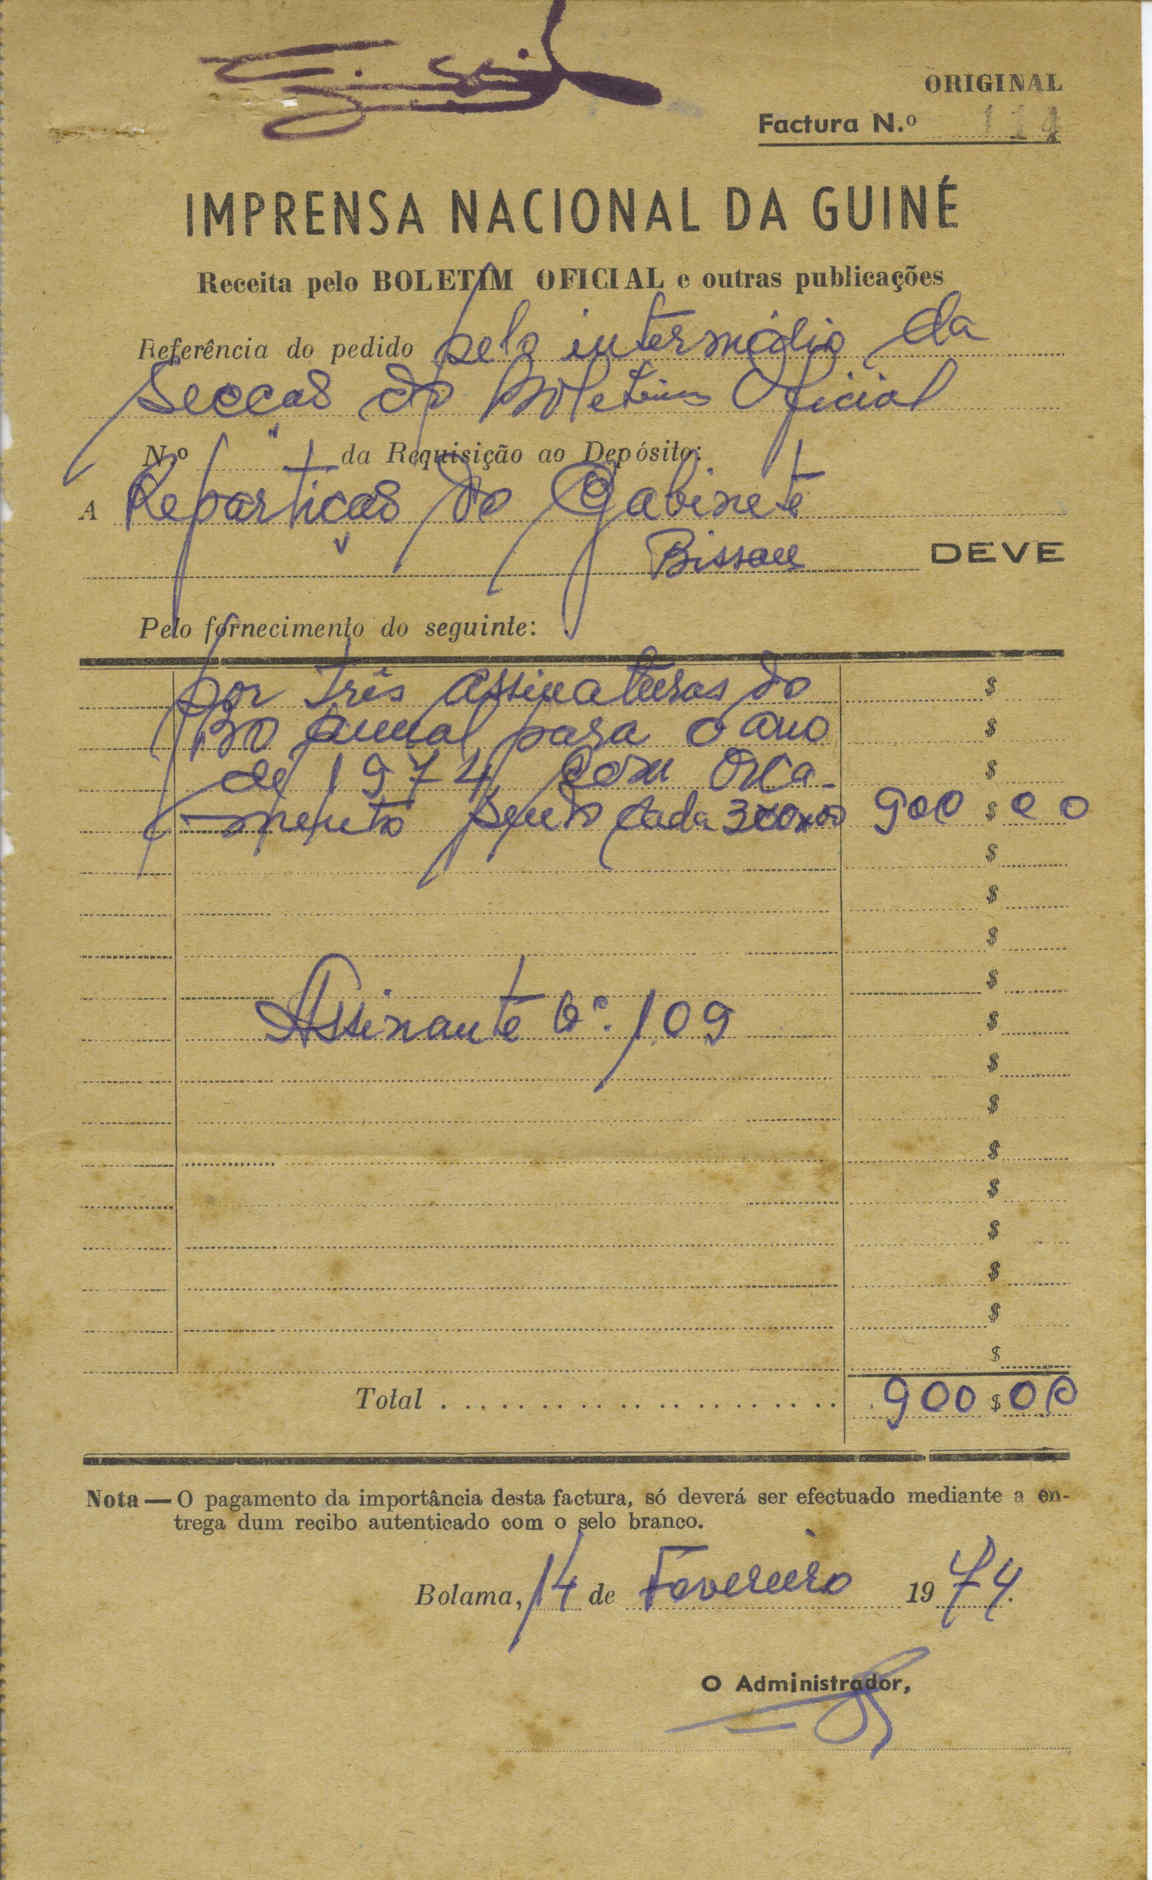 ORIGINAL
Factura N.º 114
IMPRENSA NACIONAL DA GUINÉ
Receita pelo BOLETIM OFICIAL e outras publicações
Referência do pedido pelo intermédio da
Secção do Boletim Oficial
N.º " da Requisição ao Depósito:
A Repartição do Gabinete
Bissau DEVE
Pelo fornecimento do seguinte:
por três assinaturas do $
BO anual para o ano $
de 1974, com Orça- $
mento sendo cada 300$00 900 $ 00
$
$
$
$
Assinante nº. 109 $
$
$
$
$
$
$
$
$
Total 900 $ 00
Nota — O pagamento da importância desta factura, só deverá ser efectuado mediante a en-
trega dum recibo autenticado com o selo branco.
Bolama, 14 de Fevereiro 1974.
O Administrador,